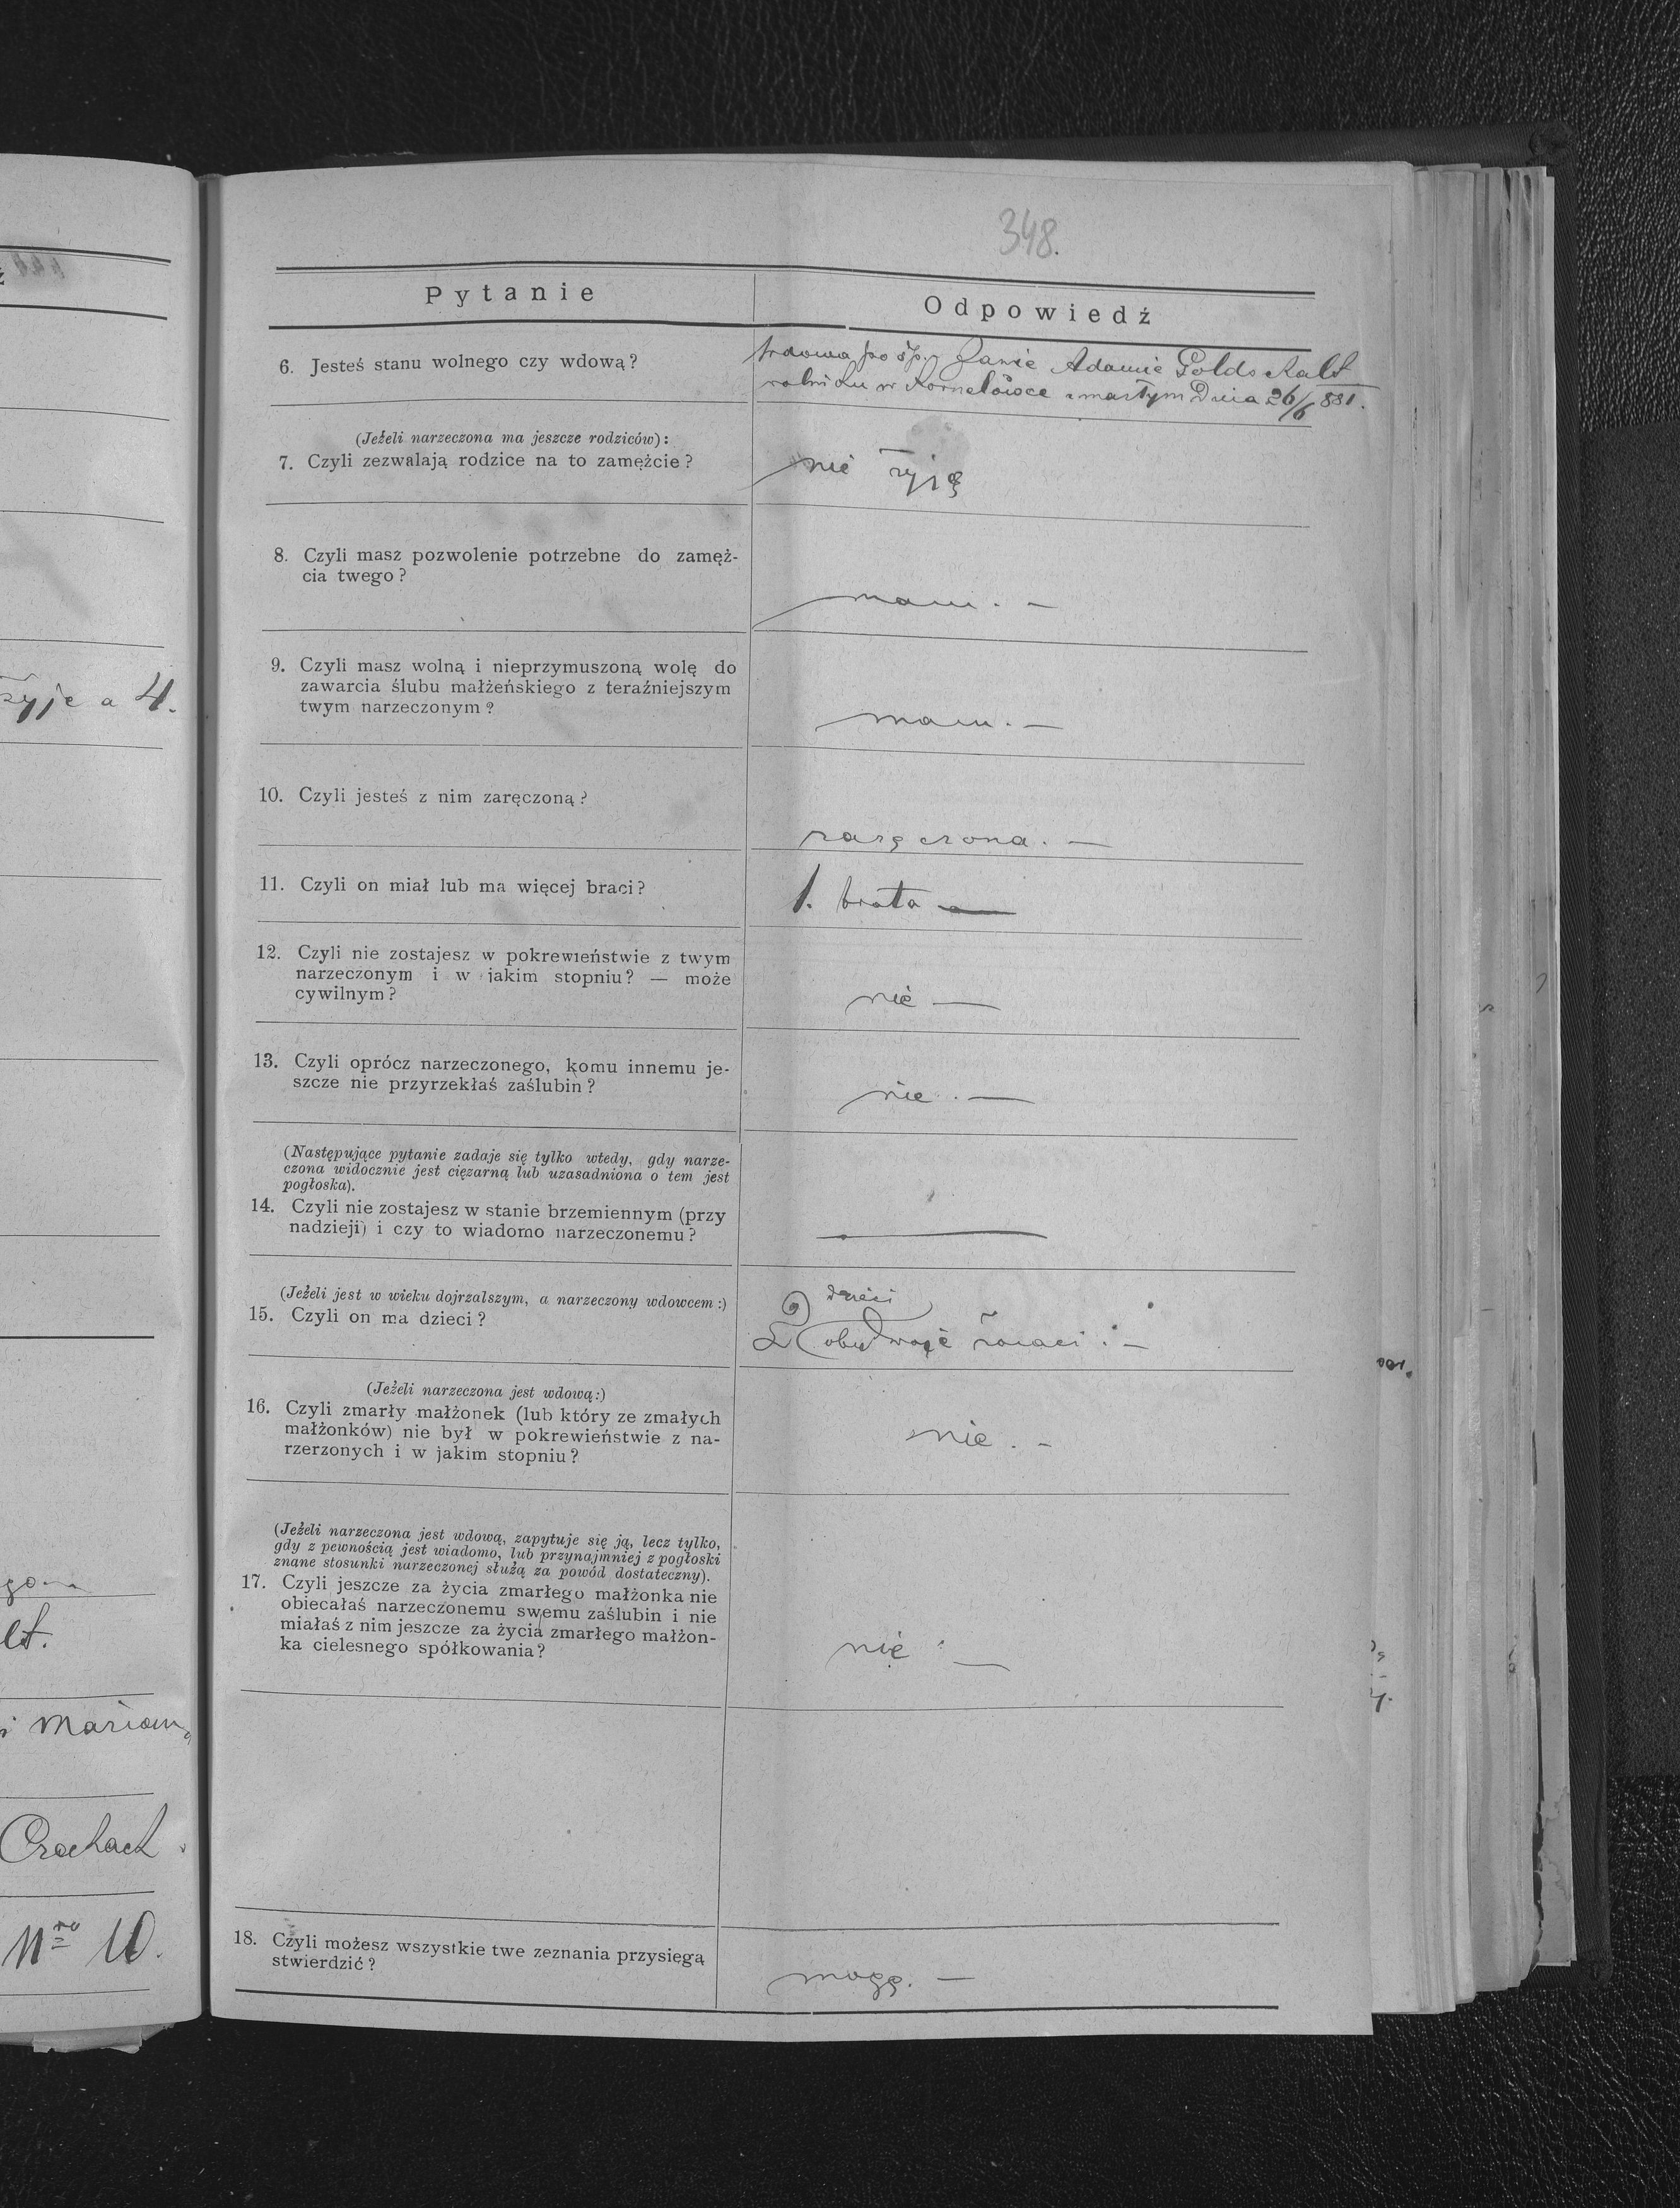 348.
Pytanie
Odpowiedź
6. Jesteś stanu wolnego czy wdową?
wdowa po śp. Janie Adamie Goldschalt
rolniku w Kornelówce zmarłym Dnia 26/6 881.
(Jeżeli narzeczona ma jeszcze rodziców):
7. Czyli zezwalają rodzice na to zamężcie?
nie żyją
8. Czyli masz pozwolenie potrzebne do zamęż-
cia twego?
mam. —
9. Czyli masz wolną i nieprzymuszoną wolę do
zawarcia ślubu małżeńskiego z teraźniejszym
twym narzeczonym?
mam. —
10. Czyli jesteś z nim zaręczoną?
zaręczona. —
11. Czyli on miał lub ma więcej braci?
1. brata —
12. Czyli nie zostajesz w pokrewieństwie z twym
narzeczonym i w jakim stopniu? — może
cywilnym?
nie —
13. Czyli oprócz narzeczonego, komu innemu je-
szcze nie przyrzekłaś zaślubin?
nie. —
(Następujące pytanie zadaje się tylko wtedy, gdy narze-
czona widocznie jest ciężarną lub uzasadniona o tem jest
pogłoska).
14. Czyli nie zostajesz w stanie brzemiennym (przy
nadzieji) i czy to wiadomo narzeczonemu?
—
(Jeżeli jest w wieku dojrzalszym, a narzeczony wdowcem:)
15. Czyli on ma dzieci?
dzieci
2 (obydwoje żonaci. —
(Jeżeli narzeczona jest wdową:)
16. Czyli zmarły małżonek (lub który ze zmałych
małżonków) nie był w pokrewieństwie z na-
rzerzonych i w jakim stopniu?
nie. —
(Jeżeli narzeczona jest wdową, zapytuje się ją, lecz tylko,
gdy z pewnością jest wiadomo, lub przynajmniej z pogłoski
znane stosunki narzeczonej służą za powód dostateczny).
17. Czyli jeszcze za życia zmarłego małżonka nie
obiecałaś narzeczonemu swemu zaślubin i nie
miałaś z nim jeszcze za życia zmarłego małżon-
ka cielesnego spółkowania?
nie. —
18. Czyli możesz wszystkie twe zeznania przysięgą
stwierdzić?
mogę. —
żyje a 4.
lt.
i Marian
Nro 10.